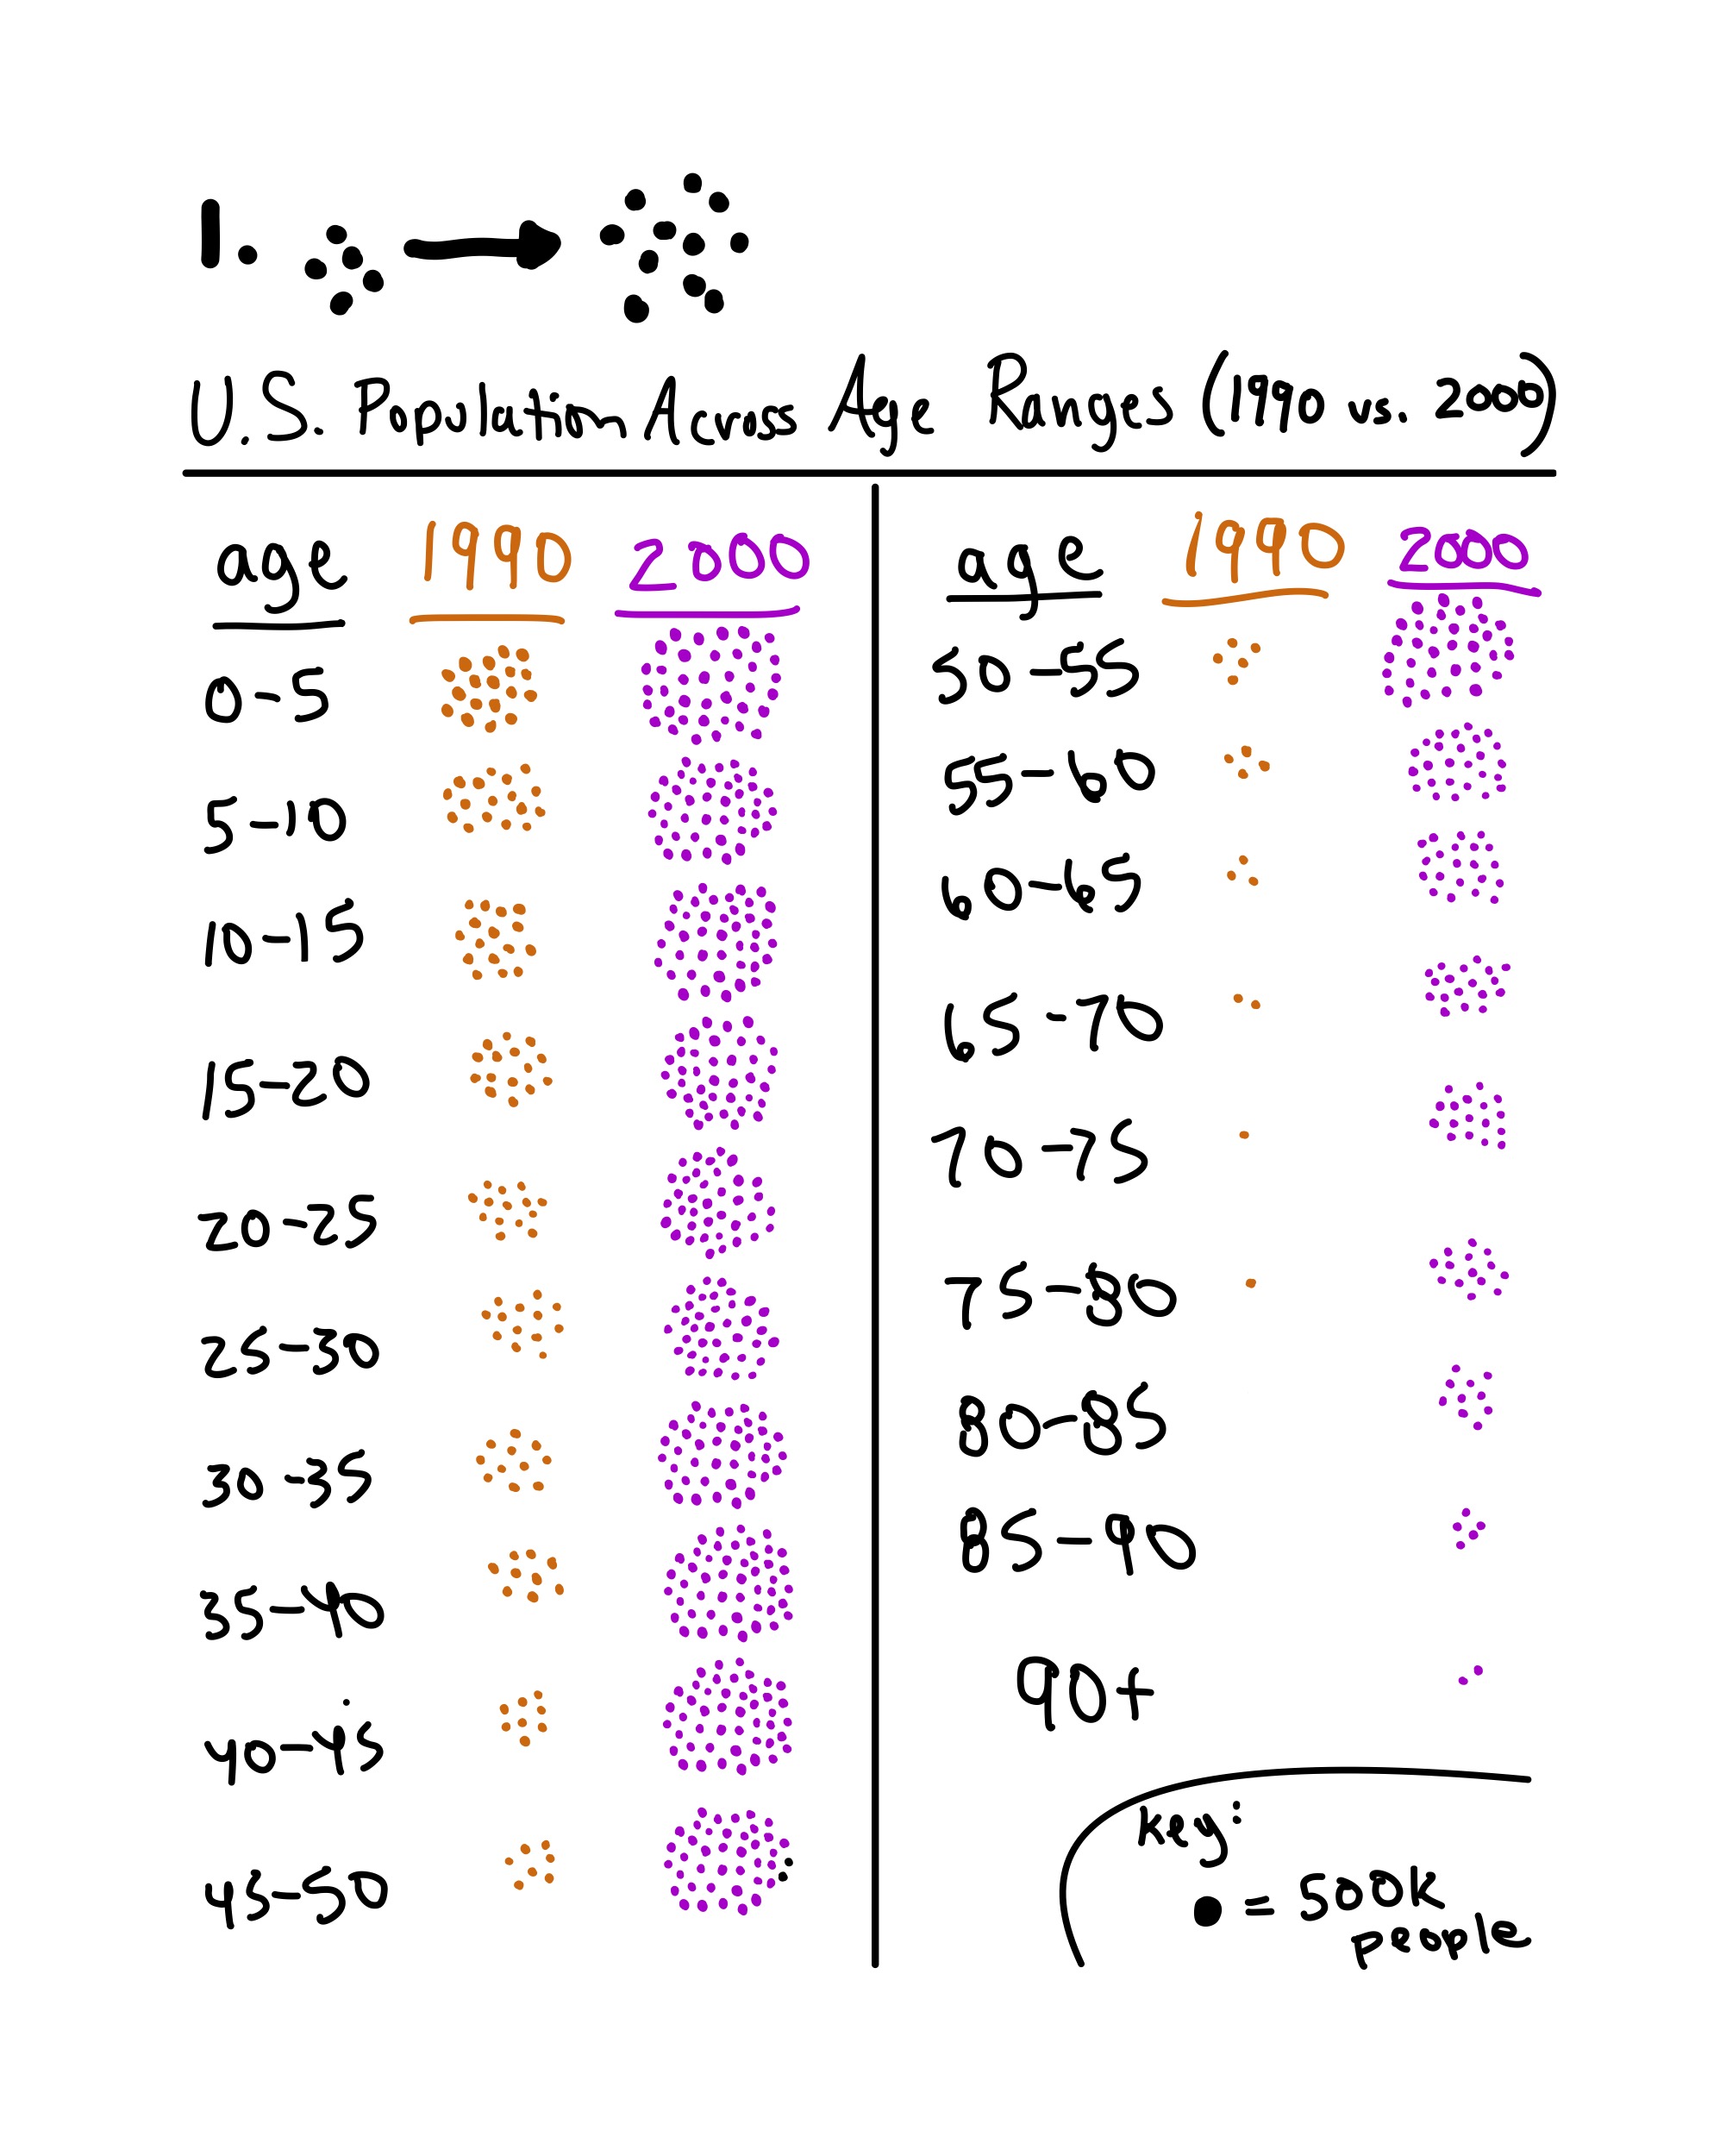 1.
U.S. Population Across Age Ranges (1990 vs. 2000)
age 1990 2000
0-5
5-10
10-15
15-20
20-25
25-30
30-35
35-40
40-45
45-50
age 1990 2000
50-55
55-60
60-65
65-70
70-75
75-80
80-85
85-90
90+
key:
= 500k
people